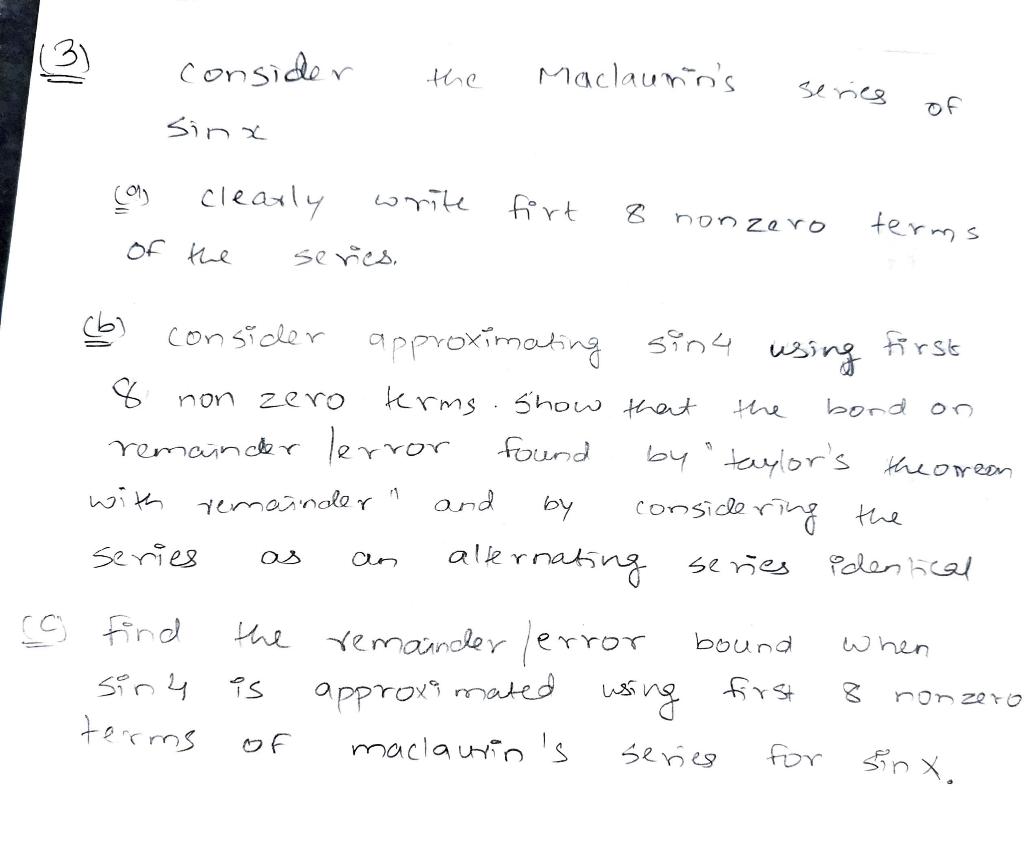 (3) consider the Maclaurin's series of
sin x
(a) clearly write firt 8 nonzero terms
of the series.
(b) consider approximating sin4 using first
8 non zero terms. Show that the bond on
remainder /error found by "taylor's theorem
with remainder" and by considering the
series as an alternating series identical
(c) find the remainder /error bound when
sin 4 is approximated using first 8 nonzero
terms of maclaurin's series for sin x.